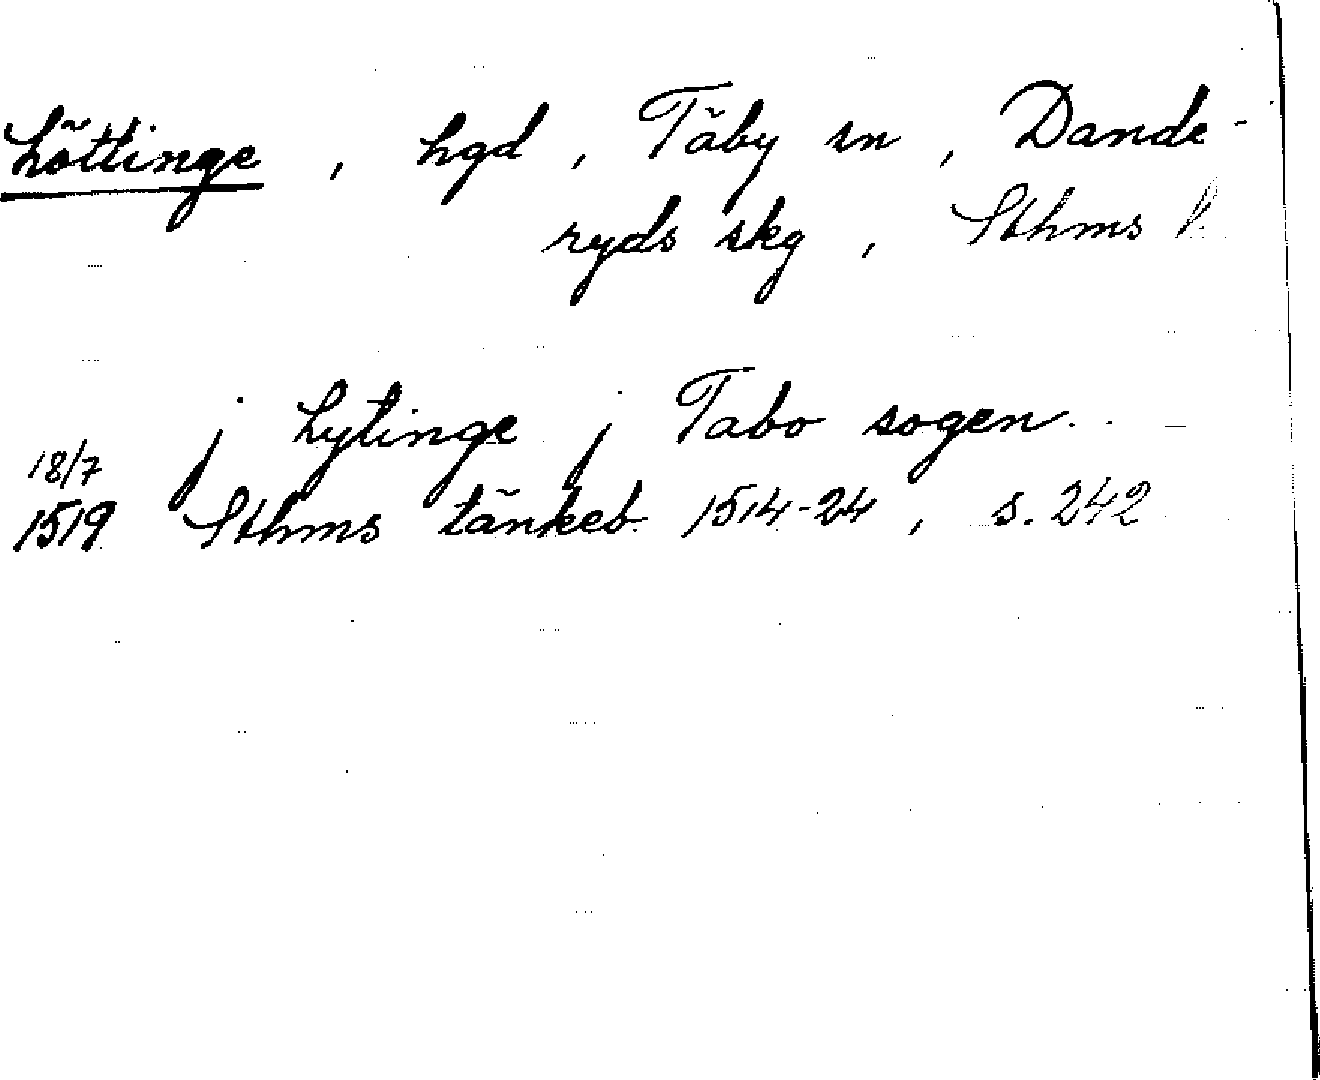 Löttinge, hgd, Täby sn, Dande-
ryds skg, Sthms l.
j Lytinge j Tabo sogen. . —
18/7
1519 Sthms tänkeb. 1514-24, s. 242